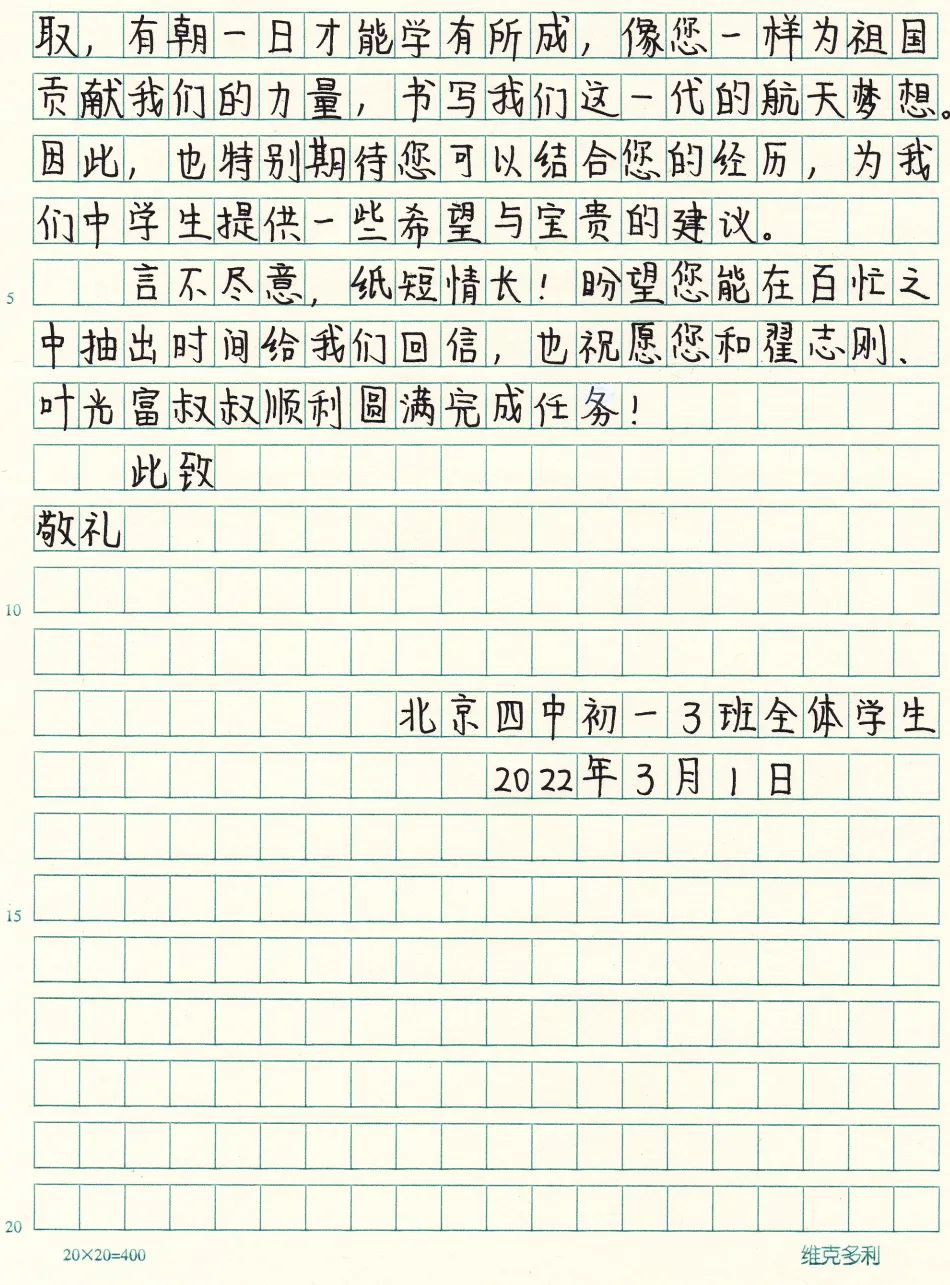 取，有朝一日才能学有所成，像您一样为祖国
贡献我们的力量，书写我们这一代的航天梦想。
因此，也特别期待您可以结合您的经历，为我
们中学生提供一些希望与宝贵的建议。
5 言不尽意，纸短情长！盼望您能在百忙之
中抽出时间给我们回信，也祝愿您和翟志刚、
叶光富叔叔顺利圆满完成任务！
此致
敬礼
10
北京四中初一3班全体学生
2022年3月1日
15
20
20×20=400 维克多利